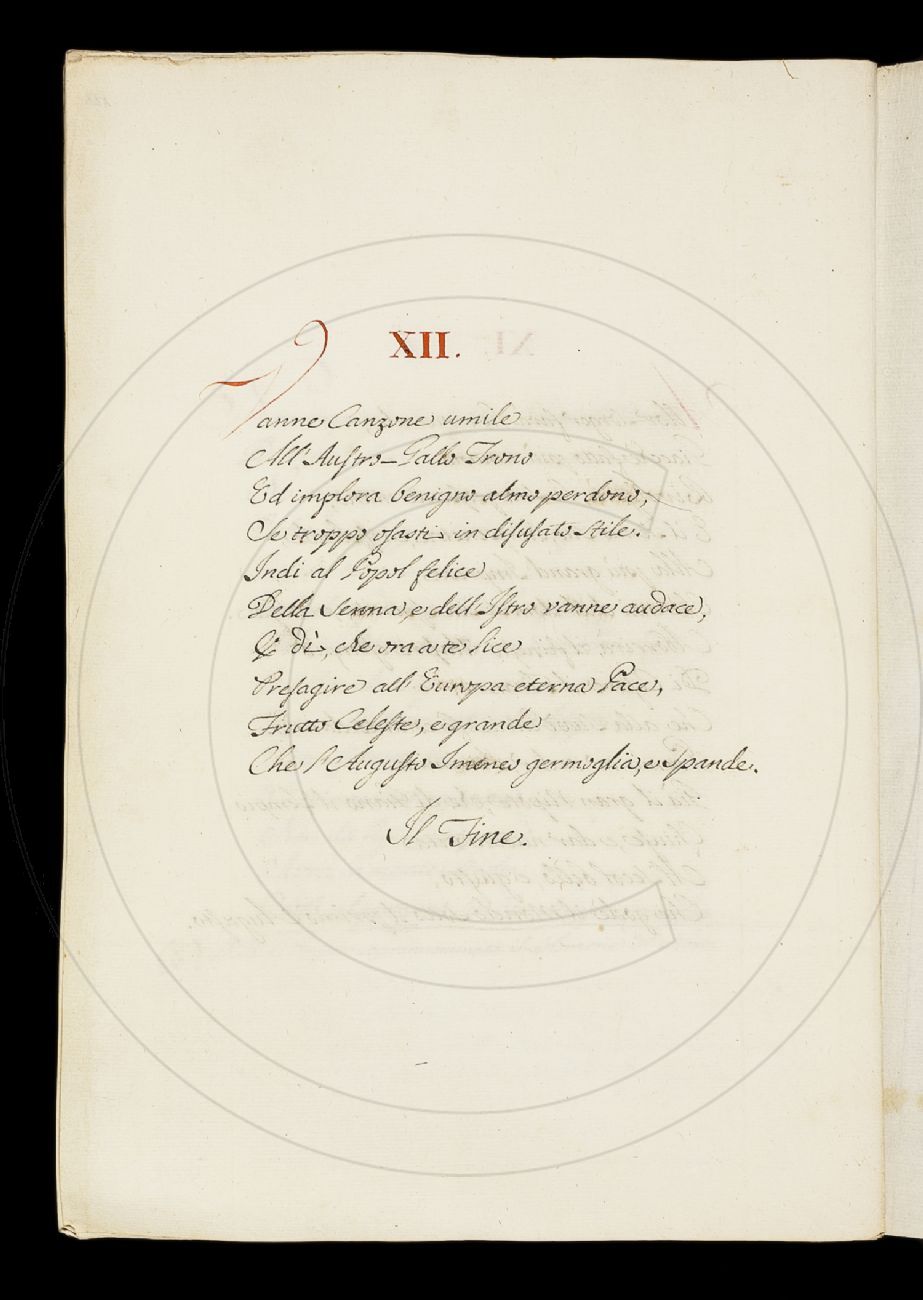 XII.
Vanne Canzone umile
All' Austro-Gallo Trono
Ed implora benigno almo perdono,
Se troppo osasti in disusato stile.
Indi al Popol felice
Della Senna, e dell' Istro vanne audace,
E dì, che ora a te lice
Presagire all' Europa eterna Pace,
Frutto Celeste, e grande
Che l'Augusto Imeneo germoglia, e spande.
Il Fine.